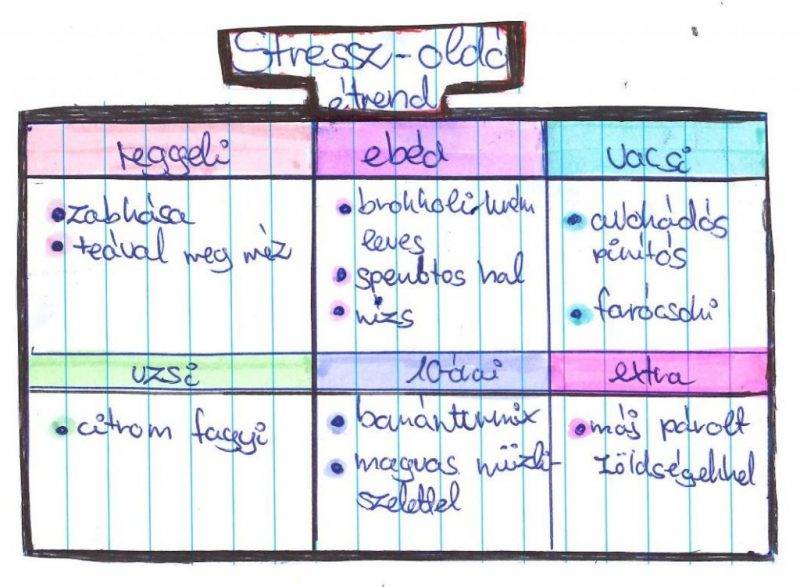 Stressz-oldó
étrend
reggeli
ebéd
vacsi
zabkása
teával meg méz
brokkolikrém
leves
spenótos hal
rizs
avokádós
pirítós
uzsi
10-órai
extra
citrom fagyi
banánturmix
magvas müzli-
szelettel
máj párolt
zöldségekkel